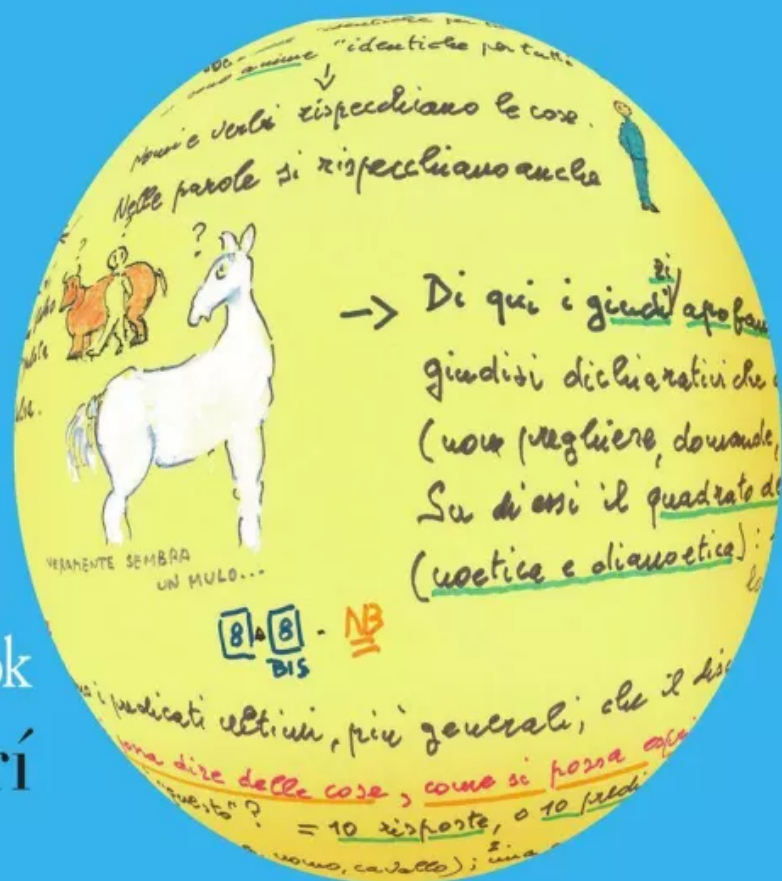 "identiche per tutti
sono anime
nomi e verbi rispecchiano le cose.
Nelle parole si rispecchiano anche
? ?
?
→ Di qui i giudizi apofan
giudizi dichiarativi che
(non preghiere, domande,
Su di essi il quadrato de
(noetica e dianoetica):
VERAMENTE SEMBRA
UN MULO...
8 8 . NB
BIS
ok
rí
i predicati ultimi, più generali, che il dis
possa dire delle cose, come si possa espri
"questo"? = 10 risposte, o 10 predi
uomo, cavallo); una